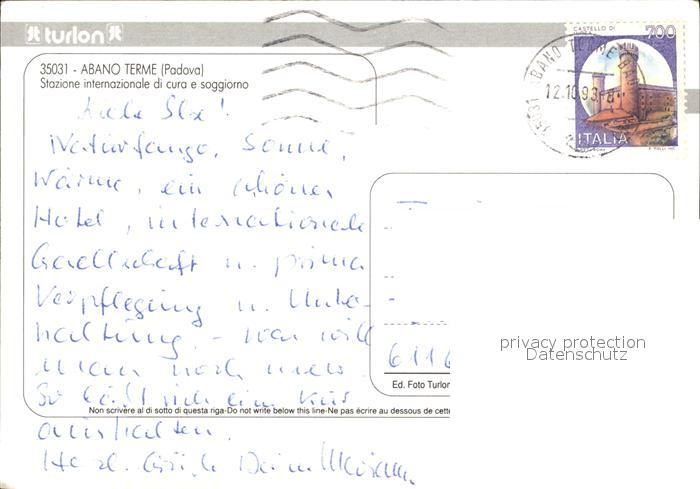 turlon
35031 - ABANO TERME (Padova)
Stazione internazionale di cura e soggiorno
CASTELLO DI
700
ITALIA
35031 ABANO TERME
12.10.93
Naturfango, Sonne,
Wärme, ein schönes
Hotel, internationale
Gesellschaft u. prima
Verpflegung u. Unter-
haltung, - was will
man noch mehr.
So läßt sich ein Kur
aushalten.
Herzl. Grüße Deine
6116
privacy protection
Datenschutz
Ed. Foto Turlon
Non scrivere al di sotto di questa riga-Do not write below this line-Ne pas écrire au dessous de cette